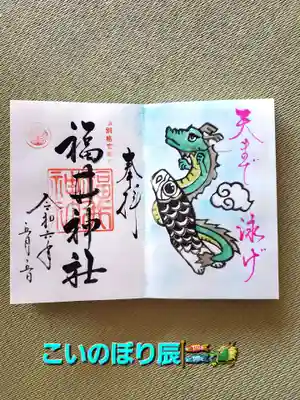 天まで
泳げ
奉拝
福井神社
令和六年
五月五日
こいのぼり辰🎏🐉